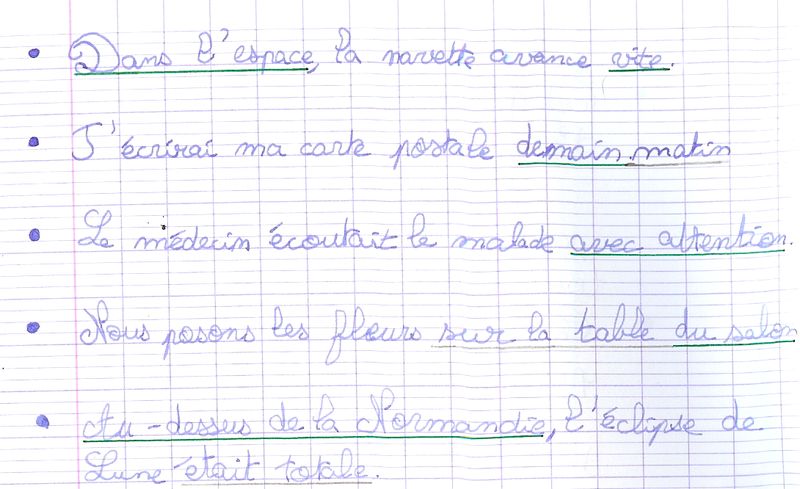 Dans l'espace, la navette avance vite.
J'écrirai ma carte postale demain matin
Le médecin écoutait le malade avec attention.
Nous posons les fleurs sur la table du salon
Au-dessus de la Normandie, l'éclipse de
Lune était totale.